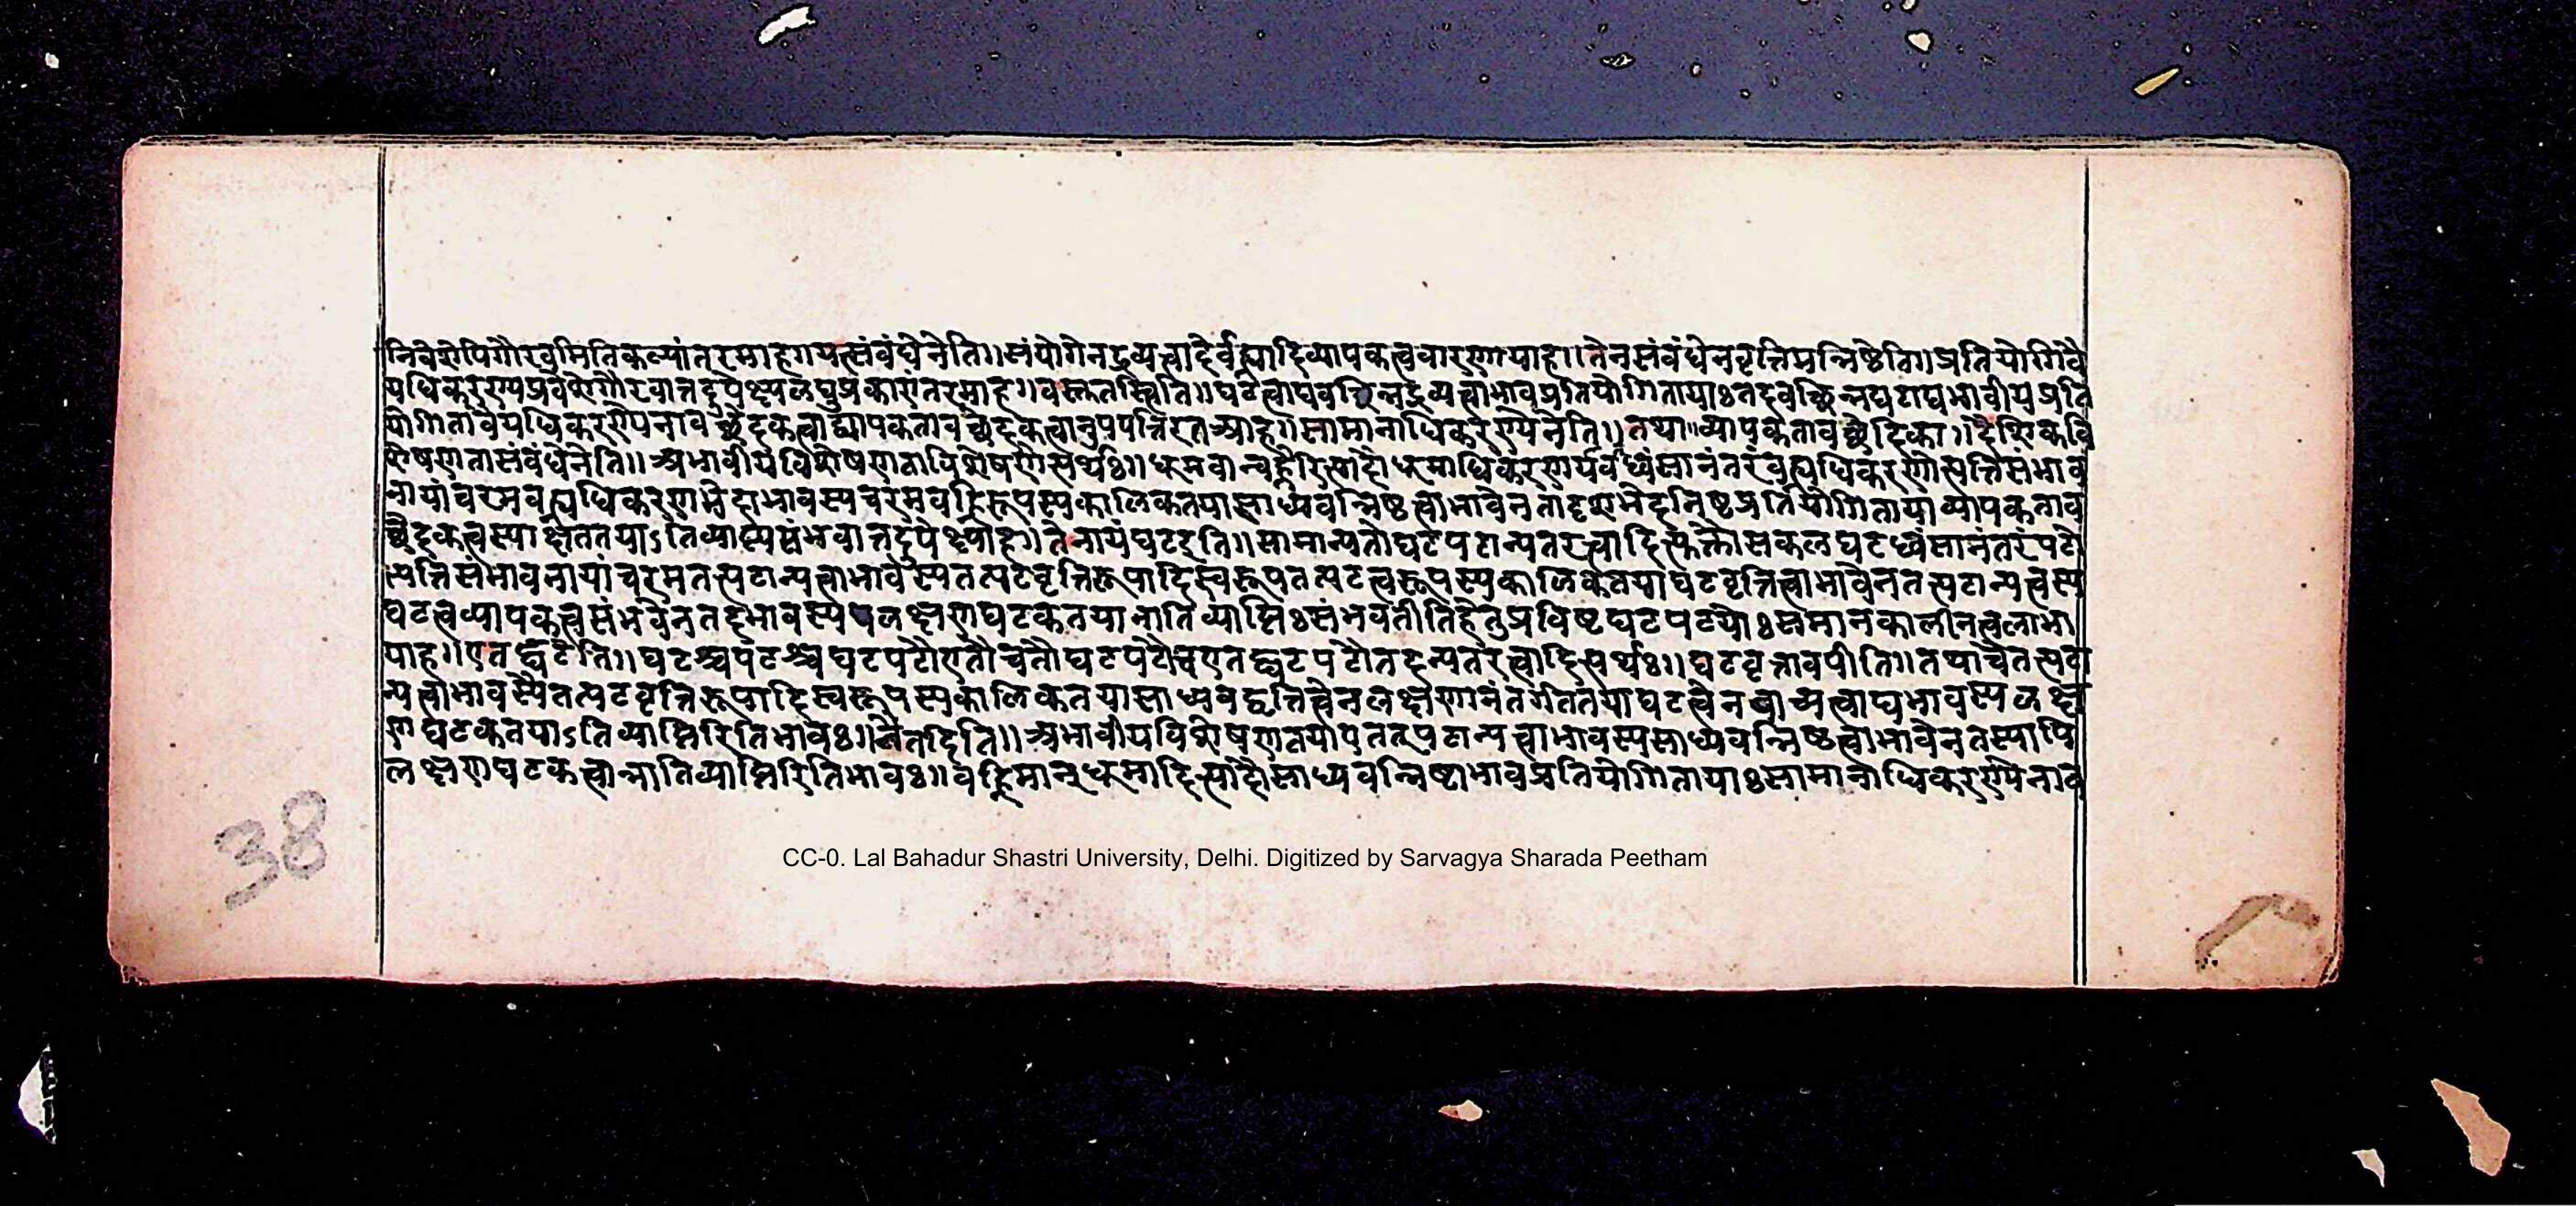 निवेशेपिगौरवमितिकल्पांतरमाहगयत्संबंधेनेति॥संयोगेनद्रव्यत्वादेर्वह्न्यादिव्यापकत्ववारणायाह॥तेनसंबंधेनवृत्तिमन्निष्ठेति॥प्रतियोगिवै
यधिकरण्यप्रवेशेगौरवात्तदुपेक्ष्यलघुप्रकारांतरमाह॥वस्तुतस्त्विति॥घटत्वाद्यवच्छिन्नद्रव्यत्वाभावप्रतियोगितायाःतदवच्छिन्नघटाद्यभावीयप्रति
योगितावैयधिकरण्येनावच्छेदकत्वाद्व्यापकतावच्छेदकत्वानुपपत्तिरतआह॥सामानाधिकरण्येनेति॥तथा॥व्यापकतावच्छेदिका॥दैशिकवि
शेषणतासंबंधेनेति॥अभावीयविशेषणताविशेषणेत्यर्थः॥धूमवान्वह्नेरित्यादौधूमाधिकरणार्यवध्वंसानंतरंवह्न्यधिकरणोत्पत्तिसंभाव
नायांचरमवह्न्यधिकरणभेदाभावस्यचरमवह्निरूपस्यकालिकतयासाध्यवन्निष्ठत्वाभावेनतादृशभेदनिष्ठप्रतियोगितायाव्यापकताव
च्छेदकत्वस्याक्षततयाऽतिव्याप्त्यसंभवात्तदुपेक्ष्याह॥तेनायंघटइति॥सामान्यतोघटपटान्यतरत्वादित्युक्तौसकलघटध्वंसानंतरंपटो
त्पत्तिसंभावनायांचरमतत्पटान्यत्वाभावस्यतत्पटवृत्तिरूपादिस्वरूपतत्पटत्वरूपस्यकालिकतयाघटवृत्तित्वाभावेनतत्पटान्यत्वस्य
घटत्वव्यापकत्वसंभवेनतदभावस्यपलक्षणघटकतयानातिव्याप्तिःसंभवतीतिहेतुप्रविष्टघटपटयोःसमानकालीनत्वलाभा
याह॥एतद्घटेति॥घटश्चपटश्चघटपटौएतौचतौघटपटौचएतद्घटपटौतदन्यतरत्वादित्यर्थः॥घटवृत्तावपीति॥तथाचैतत्पटा
न्यत्वाभावस्यैतत्पटवृत्तिरूपादिस्वरूपस्यकालिकतयासाध्यवद्वृत्तित्वेनलक्षणानंतर्गततयाघटत्वेनवाच्यत्वाद्यभावस्यलक्ष
णघटकतयाऽतिव्याप्तिरितिभावः॥नैतदिति॥अभावीयविशेषणतयाएतत्पटान्यत्वाभावस्यसाध्यवन्निष्ठत्वाभावेनतस्यापि
लक्षणघटकत्वान्नातिव्याप्तिरितिभावः॥वह्निमान्धूमादित्यादौसाध्यवन्निष्ठाभावप्रतियोगितायाःसामानाधिकरण्येनाव
38
CC-0. Lal Bahadur Shastri University, Delhi. Digitized by Sarvagya Sharada Peetham